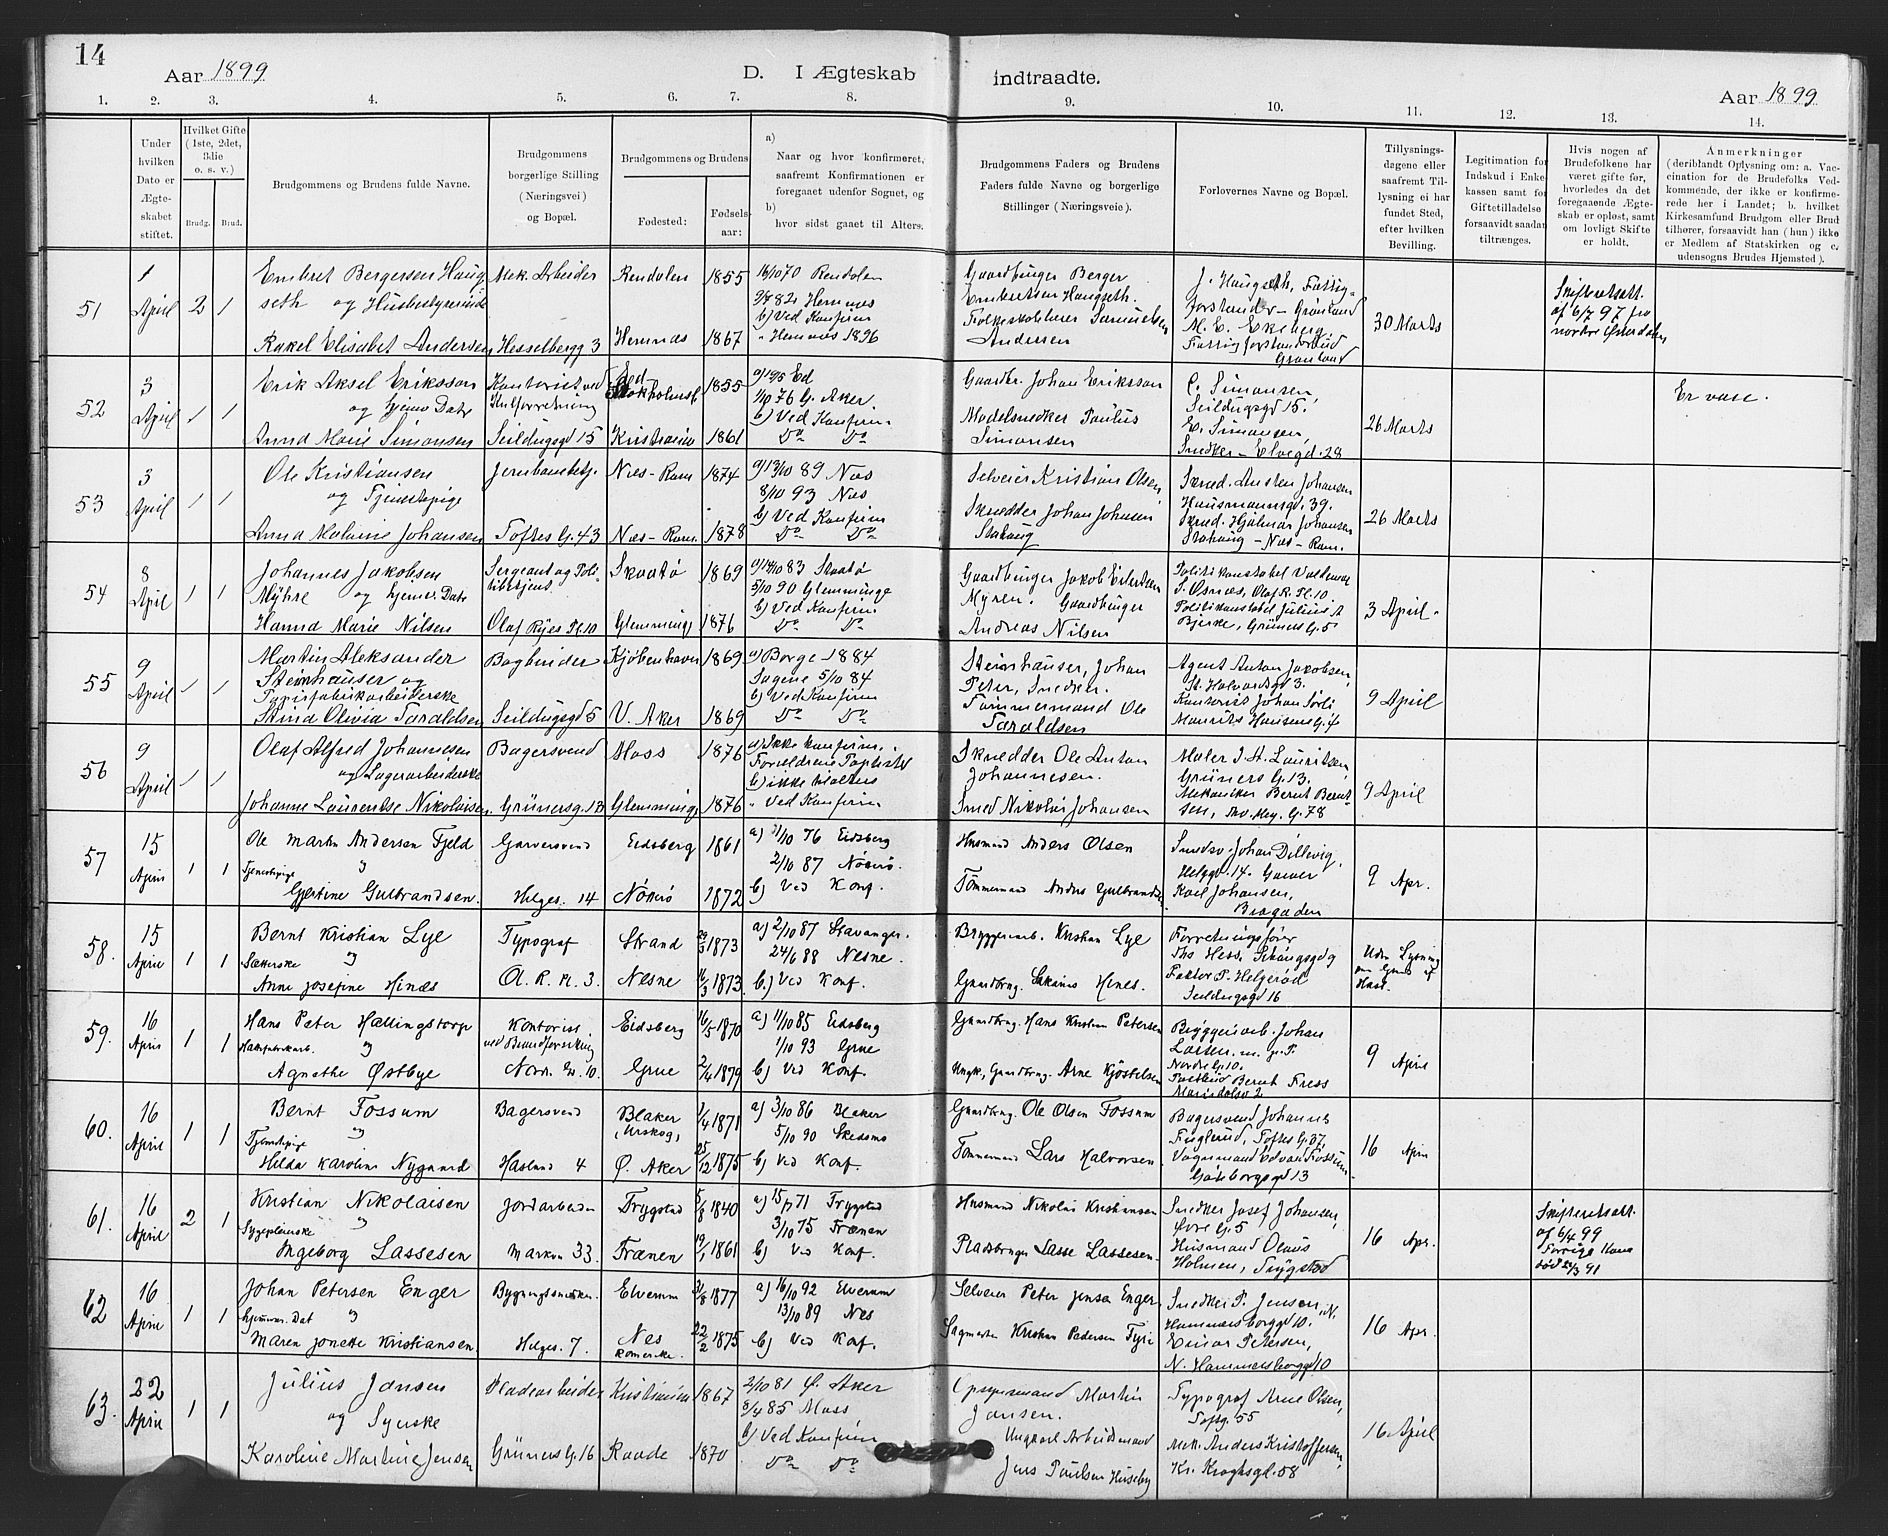 14
Aar 1899
D. I Ægteskab indtraadte.
Aar 1899
1. 2. 3. 4. 5. 6. 7. 8. 9. 10. 11. 12. 13. 14.
Under hvilken Dato er Ægteskabet stiftet.
Hvilket Gifte (1ste, 2det, 3die o. s. v.)
Brudg. Brud.
Brudgommens og Brudens fulde Navne.
Brudgommens borgerlige Stilling (Næringsvei) og Bopæl.
Brudgommens og Brudens
Fødested:
Fødselsaar:
a) Naar og hvor konfirmeret, saafremt Konfirmationen er foregaaet udenfor Sognet, og
b) hvor sidst gaaet til Alters.
Brudgommens Faders og Brudens Faders fulde Navne og borgerlige Stillinger (Næringsveie).
Forlovernes Navne og Bopæl.
Tillysningsdagene eller saafremt Tillysning ei har fundet Sted, efter hvilken Bevilling.
Legitimation for Indskud i Enkekassen samt for Giftetilladelse forsaavidt saadan tiltrænges.
Hvis nogen af Brudefolkene har været gifte før, hvorledes da det foregaaende Ægteskab er opløst, samt om lovligt Skifte er holdt.
Anmerkninger (deriblandt Oplysning om: a. Vaccination for de Brudefolks Vedkommende, der ikke er konfirmerede her i Landet; b. hvilket Kirkesamfund Brudgom eller Brud tilhører, forsaavidt han (hun) ikke er Medlem af Statskirken og c. udensogns Brudes Hjemsted).
51
1 April
2 1
Embret Bergersen Haugseth og Husbestyrerinde
Rakel Elisabet Andersen
Mek. Arbeider
Hesselbergg 3
Rendalen 1855
Hemnæs 1867
16/10 70 Rendalen
82 Hemnæs
b) Ved Konfirm
" Hemnæs 1896
Gaardbruger Berger Embretsen Haugseth.
Folkeskolelærer Samuelsen Andersen
J. Haugseth, Fattigforstander – Grønland
M. E. Ekeberg.
Grønland
30 Marts
Skifteretsatt. af 6/7 97 fra nordre Østerdalen
52
3 April
1 1
Erik Aksel Eriksson
og hjemv. Datr
Anna Marie Simonsen
Kontorist ved
Seildugsgd 15
Stokholm 1855
Kristiania 1861
Ed
1/10 76 G. Aker
b) Ved Konfirm
Do Do
Gaardbr. Johan Eriksson
Modelsnedker Paulus Simonsen
C. Simonsen
Seildugsgd 15.
E. Simonsen,
Snedker – Elvegd. 28
26 Marts
Er vacc.
53
3 April
1 1
Ole Kristiansen
og Tjenestepige
Anna Malvine Johansen
Jernbanebetj.
Toftes G. 43
Næs – Rom. 1874
Næs – Rom. 1878
a) 13/10 89 Næs
8/10 93 Næs
b) Ved Konfirm
Do Do
Selveier Kristian Olsen
Skrædder Johan Johansen
Skræd. Ansten Johansen
Hausmannsgd. 39.
Skræd. Hjalmar Johansen
– Næs – Rom.
26 Marts
54
8 April
1 1
Johannes Jakobsen
Myhre og hjemv. Datr
Hanna Marie Nilsen
Sergeant og Politibetjent
Olaf Ryes Pl. 10
Skaatø 1869
Glemminge 1876
a) 14/10 83 Skaatø
5/10 90 Glemminge
b) Ved Konfirm
Do Do
Gaardbruger Jakob Eilertsen Myren. Gaardbruger
Andreas Nilsen
Politikonstabel Valdemar
S. Osnæs, Olaf R. Pl. 10
Politikonstabel Julius A
Bjerke, Grünersg. 5
3 April
55
9 April
1 1
Martin Aleksander
Steinhauser og
Papirfabrikarbeiderske
Stina Olivia Taraldsen
Bogbinder
Seildugsgd 5
Kjøbenhavn 1869
V. Aker 1869
a) Borge 1884
Sagene 5/10 84
b) Ved Konfirm
Do Do
Steinhauser, Johan
Peter, Snedker.
Tømmermand Ole
Taraldsen
Agent Anton Jakobsen,
St. Halvardsgd 3.
Kontorist Johan Sørli
Maurits Hansens G. 4
9 April
56
9 April
1 1
Olaf Alfred Johannesen
og Lagerarbeiderske
Johanne Laurentse Nikolaisen
Bagersvend
Grünersg. 13
Moss 1876
Glemminge 1876
a) Ikke konfirm.
Forældrene Baptister
b) ikke tilalters
" Ved Konfirm
Skrædder Ole Anton
Johannesen.
Smed Nikolai Johansen
Maler J. A. Lauritsen
Grüners G. 13.
Mekaniker Bernt Berntsen, Thv. Mey. G. 78
9 April
57
15 April
1 1
Ole Martin Andersen Fjeld
Tjenestepige "
Gjertine Gulbrandsen.
Garversvend
Helges. 14
Eidsberg 1861
Nøtterø 1872
a) 1/10 76 Eidsberg
2/10 87 Nøtterø.
b) Ved Konf.
Husmand Anders Olsen
Tømmermand Anders Gulbrandsen
Johan Dillevig,
Helggd. 14. Garver
Karl Johansen,
Brogaden
9 Apr.
58.
15 April
1 1
Bernt Kristian Lye
Sætterske "
Anne Josefine Hinæs
Typograf
O. R. Pl. 3.
Strand 1873
Nesne 1873.
a) 2/10 87 Stavanger.
24/6 88 Nesne.
b.) Ved Konf.
Bryggeriarb. Kristian Lye
Gaardbrug. Hines.
Forretningsfører
Ths Hess,
Faktor P. Helgerød
Seildugsgd 16
Uden Lysning
59.
16 April
1 1
Hans Peter Hællingstorp
"
Agnethe Østbye
Kontorist
ved Brandforsikring
Nordr. G. 10.
Eidsberg 16/5 1870
Grue 2/4 1879
a) 11/10 85 Eidsberg
1/10 93 Grue
b) Ved Konf.
Gaardbrug. Hans Kristian Petersen
Ungk., Gaardbrug. Arne Kjøstelsen
Bryggeriarb. Johan
Larsen.
Nordre G. 10.
Postbud Bernt Fress
Maridalsv 2
9 April
60.
16 April
1 1
Bernt Fossum
Tjenestepige "
Hilda Karoline Nygaard
Bagersvend
Hasland 4
Blaker (Urskog) 1/4 1871
Ø. Aker 25/12 1875
a) 3/10 86 Blaker
5/10 90 Skedsmo
b) Ved Konf.
Gaardbrug. Ole Olsen Fossum
Tømmermand Lars Halvorsen.
Bagersvend Johannes
Fuglerud, Toftes G. 37,
Vognmand Edvard Fossum
Gøteborgsgd 13
16 April
61.
16 April
2 1
Kristian Nikolaisen
Sygepleierske "
Ingeborg Lassesen
Jordarbeider
Markvn 33.
Trygstad 5/8 1840
Frænen 19/1 1861
a) 15/7 71 Trygstad
3/10 75 Frænen
b) Ved Konf.
Husmand Nikolai Kristiansen
Pladsbruger Lasse Lassesen.
Snedker Josef Johansen,
Øvre G. 5
Husmand Olaus
Holmen, Trygstad
16 Apr.
Skifteretsatt.
af 6/4 99
Forrige Kone
død 22/3 91
62
16 April
1 1
Johan Petersen Enger
hjemmev. Dat "
Maren Jonette Kristiansen
Bygningssnedker.
Helges. 7.
Elverum 31/8 1877
Nes Romerike. 22/2 1875
a) 16/10 92 Elverum
13/10 89 Nes
b) Ved Konf.
Selveier Peter Jensen Enger
Sagmester Kristian Pedersen
Snedker P. Jensen, N.
Hammersborggd 10.
Einar Petersen,
N. Hammersborggd 10
16 Apr.
63.
22 April
1 1
Julius Jansen
og Syerske
Karoline Martine Jensen
Pladearbeider
Grüners G. 16
Kristiania 1867
Raade 1870
2/10 81 Ø. Aker
8/4 85 Moss
b) Ved Konfirm
Do Do
Opsynsmand Martin
Jansen.
Ungkarl Arbeidsmand
Jens Paulsen Huseby
Typograf Arne Olsen,
Toftsg. 55
Mek. Anders Kristoffersen,
Kr. Kroghsgd. 58
16 April